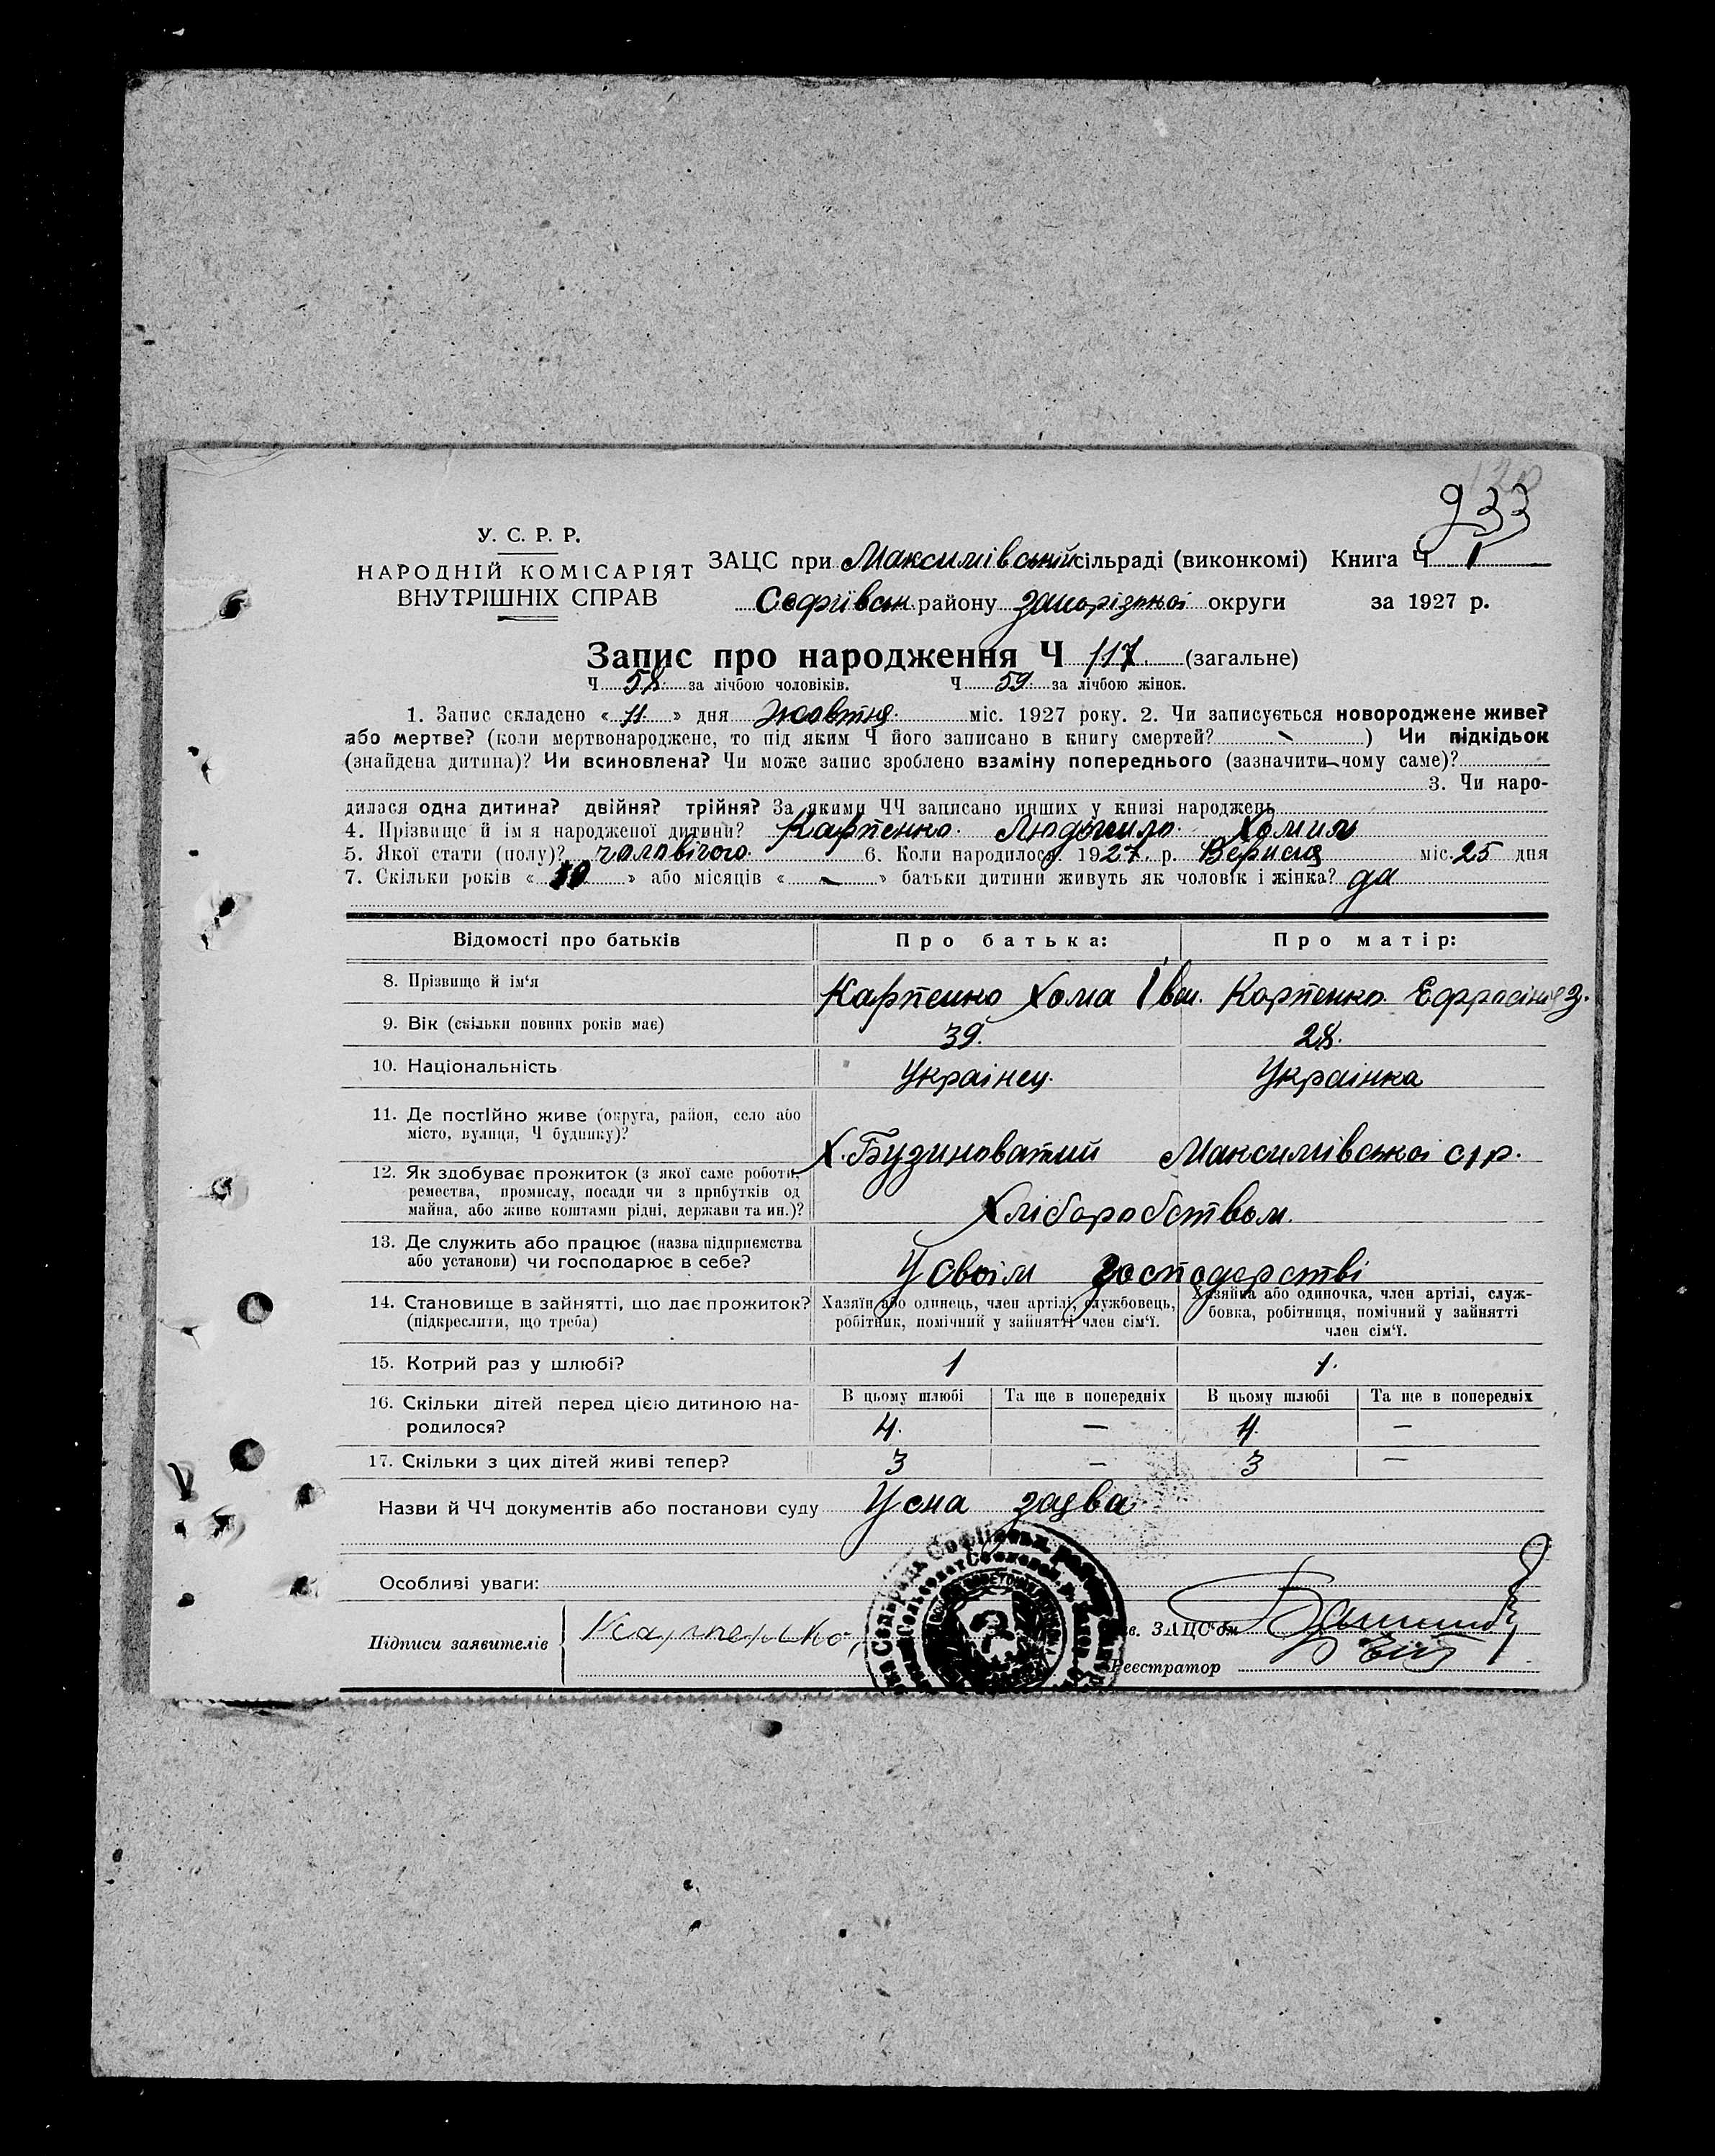 933
У. С. Р. Р.
НАРОДНІЙ КОМІСАРІЯТ
ВНУТРІШНІХ СПРАВ
ЗАЦС при Максимівській сільраді (виконкомі) Книга Ч 1
Софіївськ. району запорізької округи за 1927 р.
Запис про народження Ч 117. (загальне)
Ч 58. за лічбою чоловіків. Ч 59. за лічбою жінок.
1. Запис складено « 11 » дня жовтня міс. 1927 року. 2. Чи записується новороджене живе?
або мертве? (коли мертвонароджене, то під яким Ч його записано в книгу смертей? - ) Чи підкідьок
(знайдена дитина)? Чи всиновлена? Чи може запис зроблено взаміну попереднього (зазначити чому саме)?
3. Чи наро-
дилася одна дитина? двійня? трійня? За якими ЧЧ записано инших у книзі народжень
4. Прізвище й ім'я народженої дитини? Карпенко Хомин
5. Якої стати (полу)? чоловічого 6. Коли народилося? 1927 р. Вересня міс. 25 дня
7. Скільки років « 10 » або місяців « - » батьки дитини живуть як чоловік і жінка? да
Відомості про батьків Про батька: Про матір:
8. Прізвище й ім'я Карпенко Хома Іван. Карпенко Ефросінія З.
9. Вік (скільки повних років має) 39. 28.
10. Національність Українец. Українка
11. Де постійно живе (округа, район, село або
місто, вулиця, Ч будинку)? Х. Бузиноватий Максимівської с/р.
12. Як здобуває прожиток (з якої саме роботи,
ремества, промислу, посади чи з прибутків од
майна, або живе коштами рідні, держави та ин.)? Хліборобством.
13. Де служить або працює (назва підприємства
або установи) чи господарює в себе? У своїм господарстві
14. Становище в зайнятті, що дає прожиток?
(підкреслити, що треба)
Хазяїн або одинець, член артілі, службовець,
робітник, помічний у зайнятті член сім'ї.
Хазяйка або одиночка, член артілі, служ-
бовка, робітниця, помічний у зайнятті
член сім'ї.
15. Котрий раз у шлюбі? 1 1.
16. Скільки дітей перед цією дитиною на-
родилося?
В цьому шлюбі Та ще в попередніх В цьому шлюбі Та ще в попередніх
4. — 4. —
17. Скільки з цих дітей живі тепер? 3 — 3 —
Назви й ЧЧ документів або постанови суду Усна заява
Особливі уваги:
Підписи заявителів Карпенко
в. ЗАЦС'ом
Реєстратор